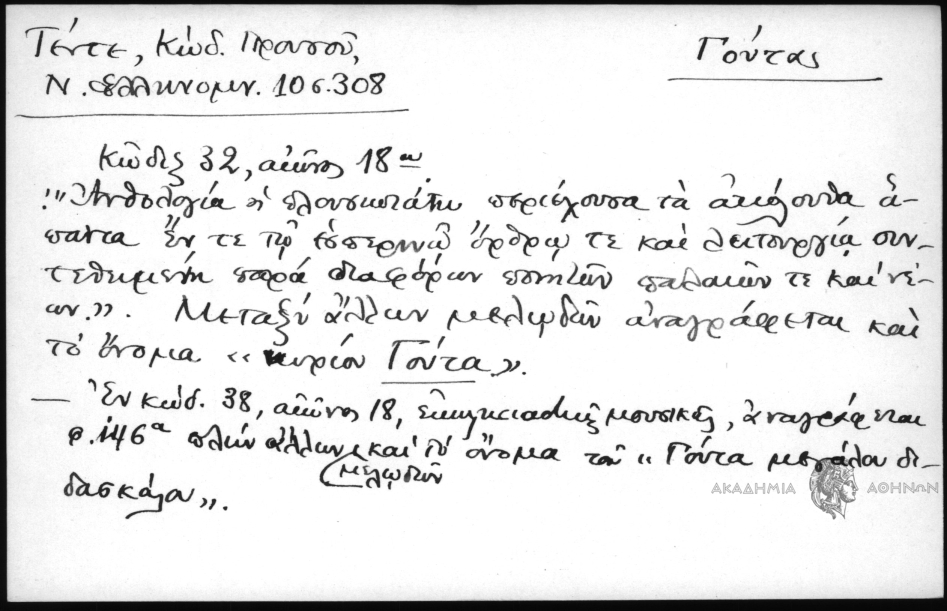 Τέντε, Κώδ. Προυσοῦ,
Γούτας
Ν. Ἑλληνομν. 10 σ. 308
Κῶδιξ 32, αἰῶνος 18ου.
"Ἀνθολογία ἡ πλουσιωτάτη περιέχουσα τὰ ἀκόλουθα ἅ-
παντα ἔν τε τῷ ἑσπερινῷ ὄρθρῳ τε καὶ λειτουργίᾳ συν-
τεθειμένη παρὰ διαφόρων ποιητῶν παλαιῶν τε καὶ νέ-
ων.". Μεταξὺ ἄλλων μελῳδῶν ἀναγράφεται καὶ
τὸ ὄνομα «κυρίου Γούτα».
— Ἐν κώδ. 38, αἰῶνος 18, ἐκκλησιαστικῆς μουσικῆς, ἀναγράφεται
φ. 146α πλὴν ἄλλων μελῳδῶν καὶ τὸ ὄνομα τοῦ «Γούτα μεγάλου δι-
δασκάλου».
ΑΚΑΔΗΜΙΑ ΑΘΗΝΩΝ